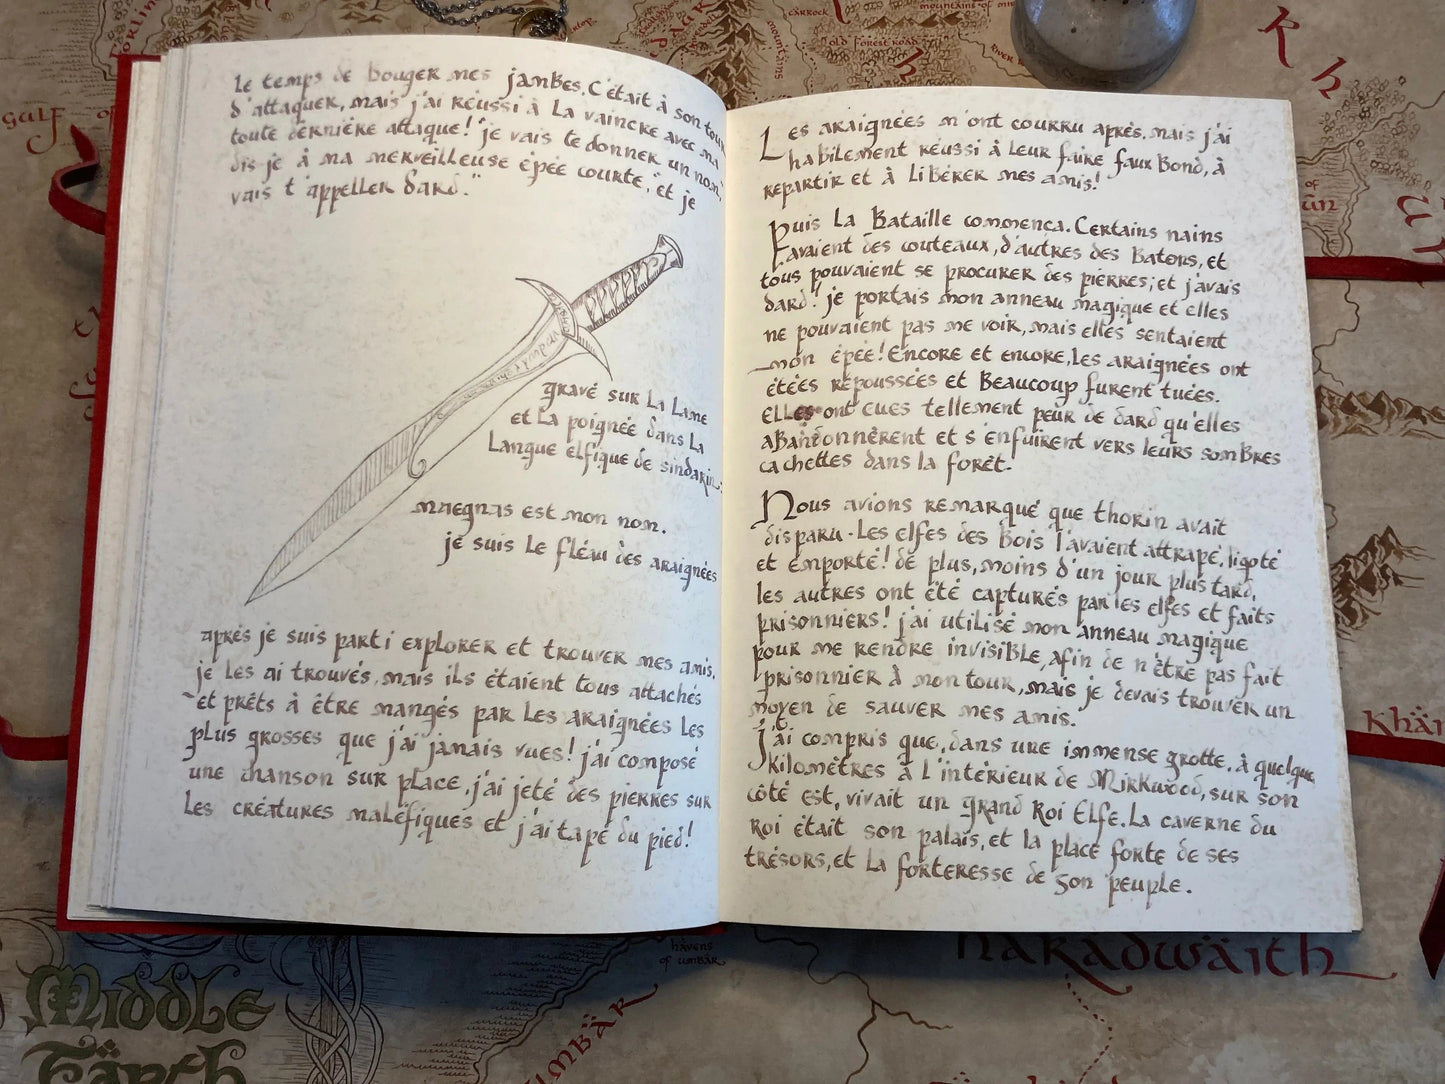 le temps de bouger mes jambes. C'était à son tour
d'attaquer, mais j'ai réussi à la vaincre avec ma
toute dernière attaque! "je vais te donner un nom,"
dis-je à ma merveilleuse épée courte, "et je
vais t'appeller dard."
gravé sur la lame
et la poignée dans la
langue elfique de sindarin:
maegnas est mon nom.
je suis le fléau des araignées
après je suis parti explorer et trouver mes amis.
je les ai trouvés, mais ils étaient tous attachés
et prêts à être mangés par les araignées les
plus grosses que j'ai jamais vues! j'ai composé
une chanson sur place, j'ai jeté des pierres sur
les créatures maléfiques et j'ai tapé du pied!
Les araignées m'ont courru après, mais j'ai
habilement réussi à leur faire faux bond, à
repartir et à libérer mes amis!
Puis la bataille commença. Certains nains
avaient des couteaux, d'autres des batons, et
tous pouvaient se procurer des pierres; et j'avais
dard! je portais mon anneau magique et elles
ne pouvaient pas me voir, mais elles sentaient
mon épée! Encore et encore, les araignées ont
étées repoussées et beaucoup furent tuées.
Elles ont eues tellement peur de dard qu'elles
abandonnèrent et s'enfuirent vers leurs sombres
cachettes dans la forêt.
Nous avions remarqué que thorin avait
disparu. Les elfes des bois l'avaient attrapé, ligoté
et emporté! de plus, moins d'un jour plus tard,
les autres ont été capturés par les elfes et faits
prisonniers! j'ai utilisé mon anneau magique
pour me rendre invisible, afin de n'être pas fait
prisonnier à mon tour, mais je devais trouver un
moyen de sauver mes amis.
j'ai compris que, dans une immense grotte, à quelque
kilomètres à l'intérieur de Mirkwood, sur son
côté est, vivait un grand Roi Elfe. La caverne du
Roi était son palais, et la place forte de ses
trésors, et la forteresse de son peuple.
GULF
CARROCK
OLD FOREST ROAD
MOUNTAINS OF
RIVER
Kh
OF
KHÄ
HAVENS
OF UMBAR
UMBÄR
HARADWAITH
MIDDLE
EARTH